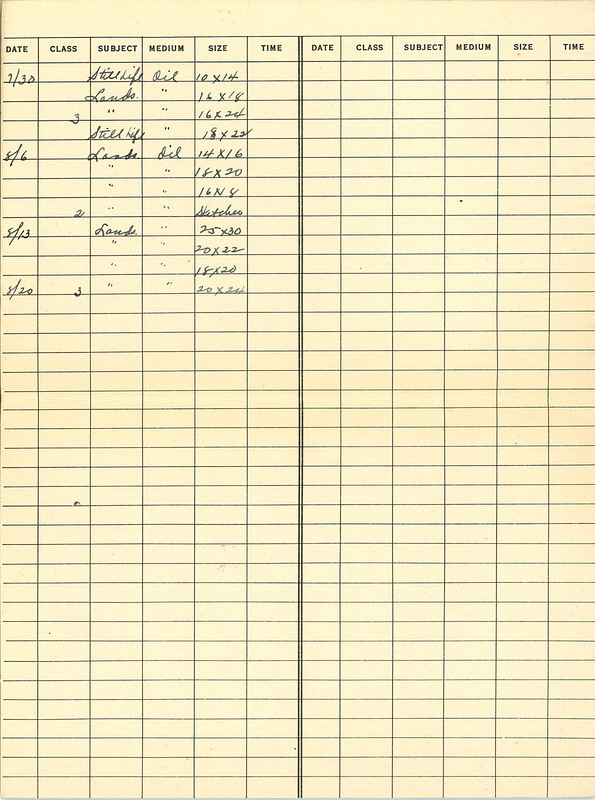 DATE CLASS SUBJECT MEDIUM SIZE TIME DATE CLASS SUBJECT MEDIUM SIZE TIME
7/30 Still Life Oil 10 X 14
Lands. " 16 X 18
3 " " 16 X 24
Still Life " 18 X 22
8/6 Lands. Oil 14 X 16
" " 18 X 20
" "
2 " " Sketches
8/13 Lands. " 25 X 30
" " 20 X 22
" " 18 X 20
8/20 3 " " 20 X 24